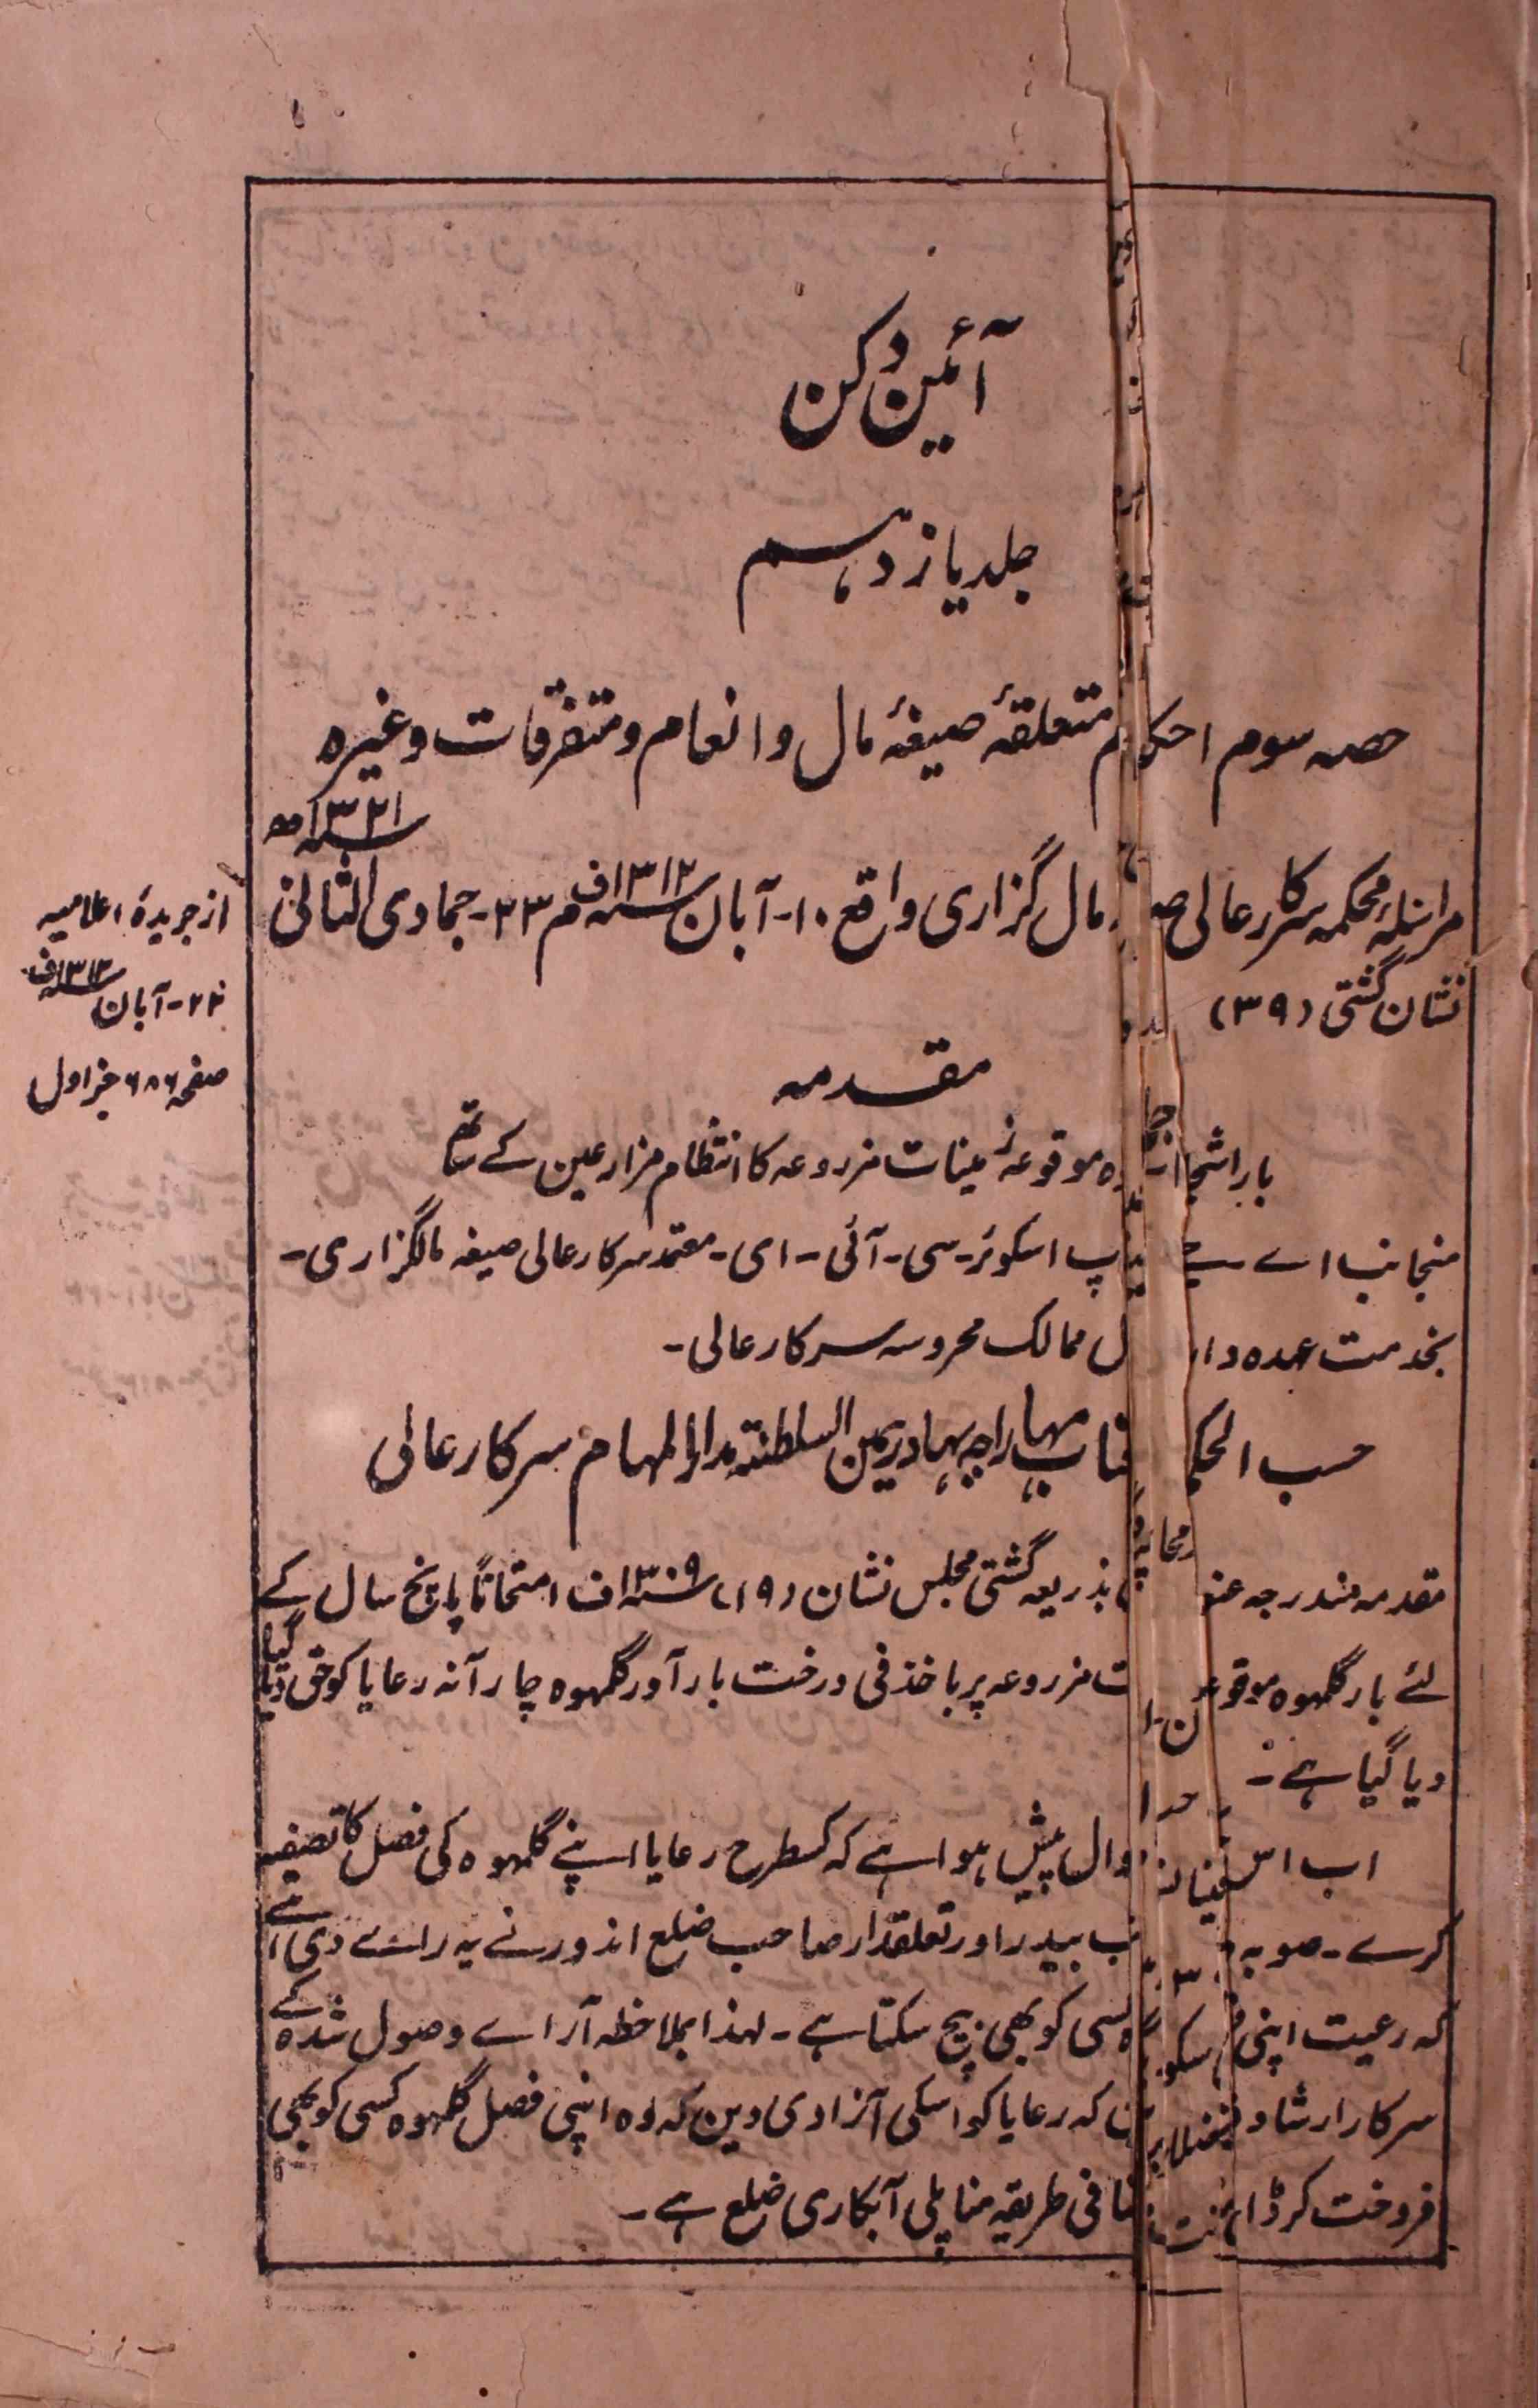 آئین دکن
جلد یازدہم
حصہ سوم احکام متعلقۂ صیغۂ مال و انعام و متفرقات وغیرہ
مراسلۂ محکمہ سرکار عالی مال گزاری واقع ۱۰- آبان ۱۳۱۲ف م ۲۳- جمادی الثانی ۱۳۲۱
نشان گشتی (۳۹)
از جریدۂ اعلامیہ
۲۲- آبان ۱۳۱۲ف
صفحہ ۶۸۶ جز اول
مقدمہ
بار اشجار موقوعہ زمینات مزروعہ کا انتظام مزارعین کے ساتھ
منجانب اے اسکوئر- سی- آئی- ای- معتمد سرکار عالی صیغہ مالگزاری-
بخدمت عہدہ دار ممالک محروسہ سرکار عالی-
حسب الحکم مہاراجہ بہادر یمین السلطنتہ مدارالمہام سرکار عالی
مقدمہ مندرجہ بذریعہ گشتی مجلس نشان (۱۹) ۱۳۰۹ف امتحاناً پانچ سال کے
لئے بار گلہوہ موقوعہ مزروعہ پر باخذ فی درخت بار آور گلہوہ چار آنہ رعایا کو حق دیا گیا
دیا گیا ہے-
اب سوال پیش ہوا ہے کہ کسطرح رعایا اپنے گلہوہ کی فصل کا تصفیہ
کرے- صوبہ بیدر اور تعلقدار صاحب ضلع اندور نے یہ رائے دی ہے
کہ رعیت اپنی کسی کو بھی بیچ سکتا ہے- لہذا بملاحظہ آراے وصول شدہ کے
سرکار ارشاد کہ رعایا کو اسکی آزادی دین کہ وہ اپنی فصل گلہوہ کسی کو بھی
فروخت کر منافی طریقہ مناپلی آبکاری ضلع ہے-